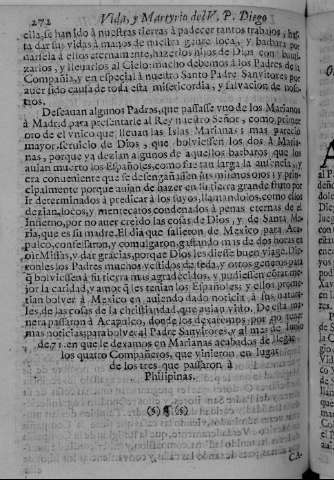 272 Vida, y Martyrio del V. P. Diego
ella, se han ido à nuestras tierras à padecer tantos trabajos, has
ta dar sus vidas à manos de nuestra gente loca, y barbara por
darsela à ellos eternamente, hazerlos hijos de Dios con
zarlos, y llevarlos al Cielo: mucho debemos à los Padres de la
Compañia, y en especial à nuestro Santo Padre Sanvitores por
auer sido causa de toda esta misericordia, y salvacion de noso-
tros.
Deseauan algunos Padres, que passasse vno de los Marianos
à Madrid para presentarle al Rey nuestro Señor, como primer
oro de el vnico que lleuan las Islas Marianas; mas pareciò
mayor servicio de Dios, que bolviessen los dos à Maria-
nas, porque ya dezian algunos de aquellos barbaros que los
auian muerto los Españoles, como fue tan larga la ausencia, y
era conveniente que se desengañassen sus mismos ojos; y prin-
cipalmente porque auian de hazer en su tierra grande fruto por
ir determinados à predicar à los suyos, llamandolos, como ellos
dezian, locos, y mentecatos condenados à penas eternas de el
Infierno, por no auer creido las cosas de Dios, y de Santa Ma-
ria, que es su madre. El dia que salieron de Mexico para Aca-
pulco, confessaron, y comulgaron, gastando mas de dos horas en
oir Missas, y dar gracias, porque Dios les diesse buen viage. Die-
ronles los Padres muchos vestidos de seda, y otros generos para
q̃ bolviessen à su tierra mas agradecidos, y pudiessen
jor la caridad, y amor q̃ les tenian los Españoles; y ellos prome-
tian bolver à Mexico en auiendo dado noticia à sus natura-
les, de las cosas de la christiandad, que auian visto. De esta ma-
nera passaron à Acapulco, donde los dexaremos por no
mas noticias para bolver al Padre Sanvitores, al mes de Iunio
de 71. en que le dexamos en Marianas acabados de llegar
los quatro Compañeros, que vinieron en lugar
de los tres que passaron à
Philipinas.
(§) ¶ (§)
CA-